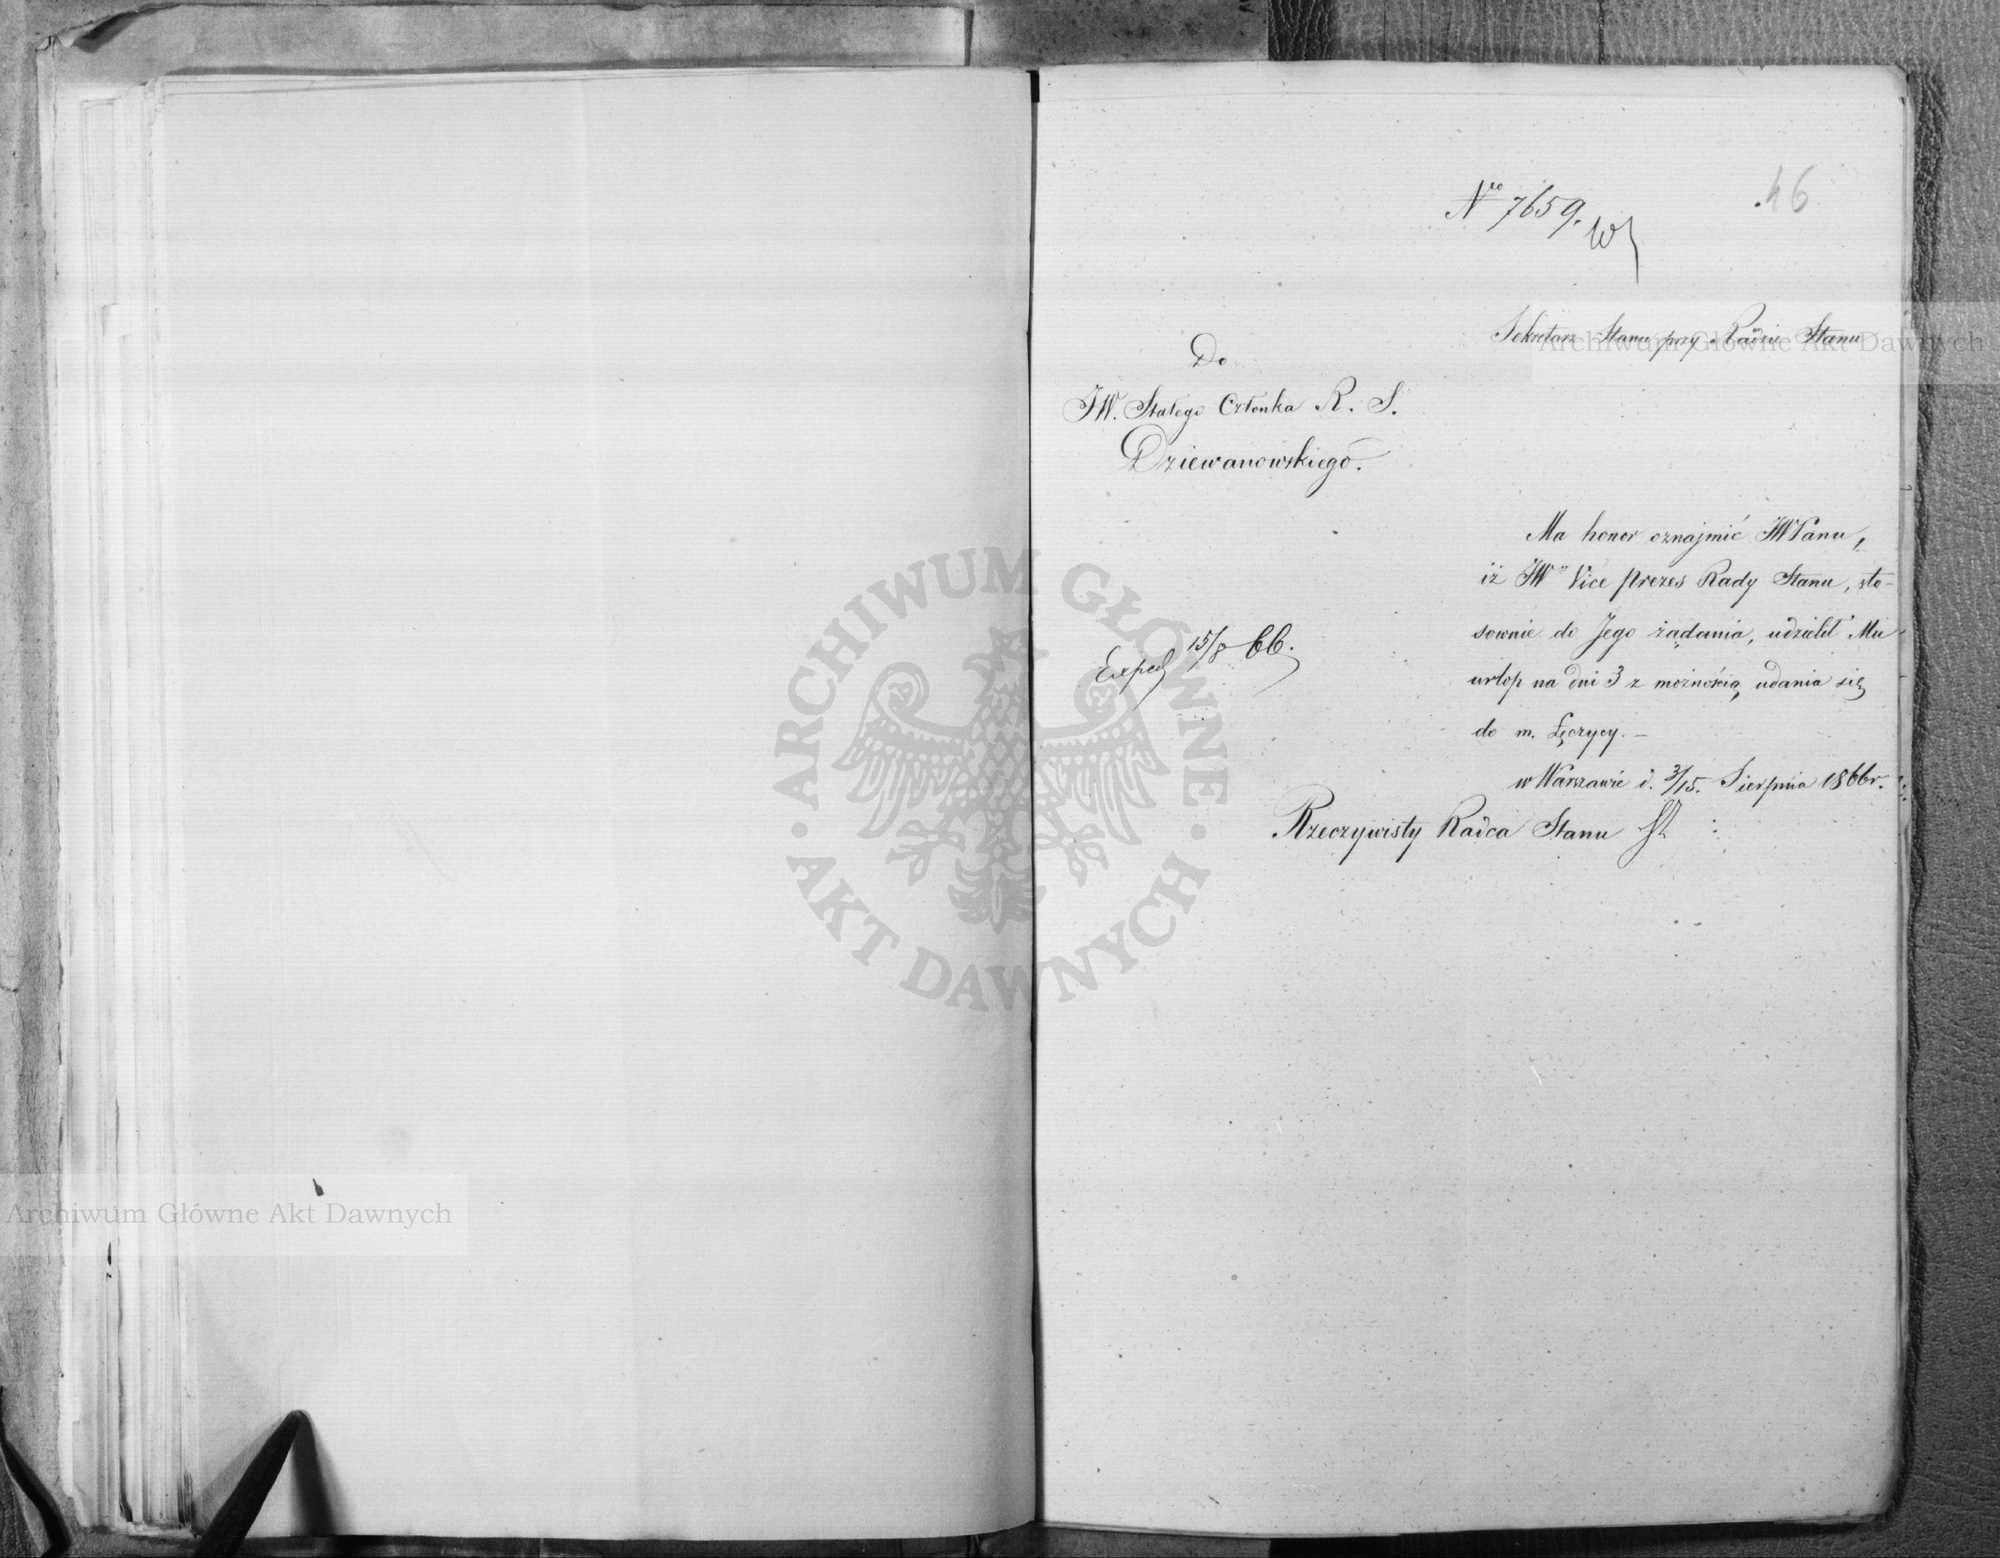 46
Nro 7659.
Sekretarz Stanu przy Radzie Stanu
Do
JW. Stałego Członka R. S.
Dziewanowskiego.
Ma honor oznajmić JWPanu,
iż JW Vice Prezes Rady Stanu, sto-
sownie do Jego żądania, udzielił Mu
urlop na dni 3 z możnością udania się
do m. Łęczycy. –
w Warszawie d. 3/15. Sierpnia 1866 r.
Exped 15/8 66.
Rzeczywisty Radca Stanu
Archiwum Główne Akt Dawnych
ARCHIWUM GŁÓWNE
AKT DAWNYCH
Archiwum Główne Akt Dawnych